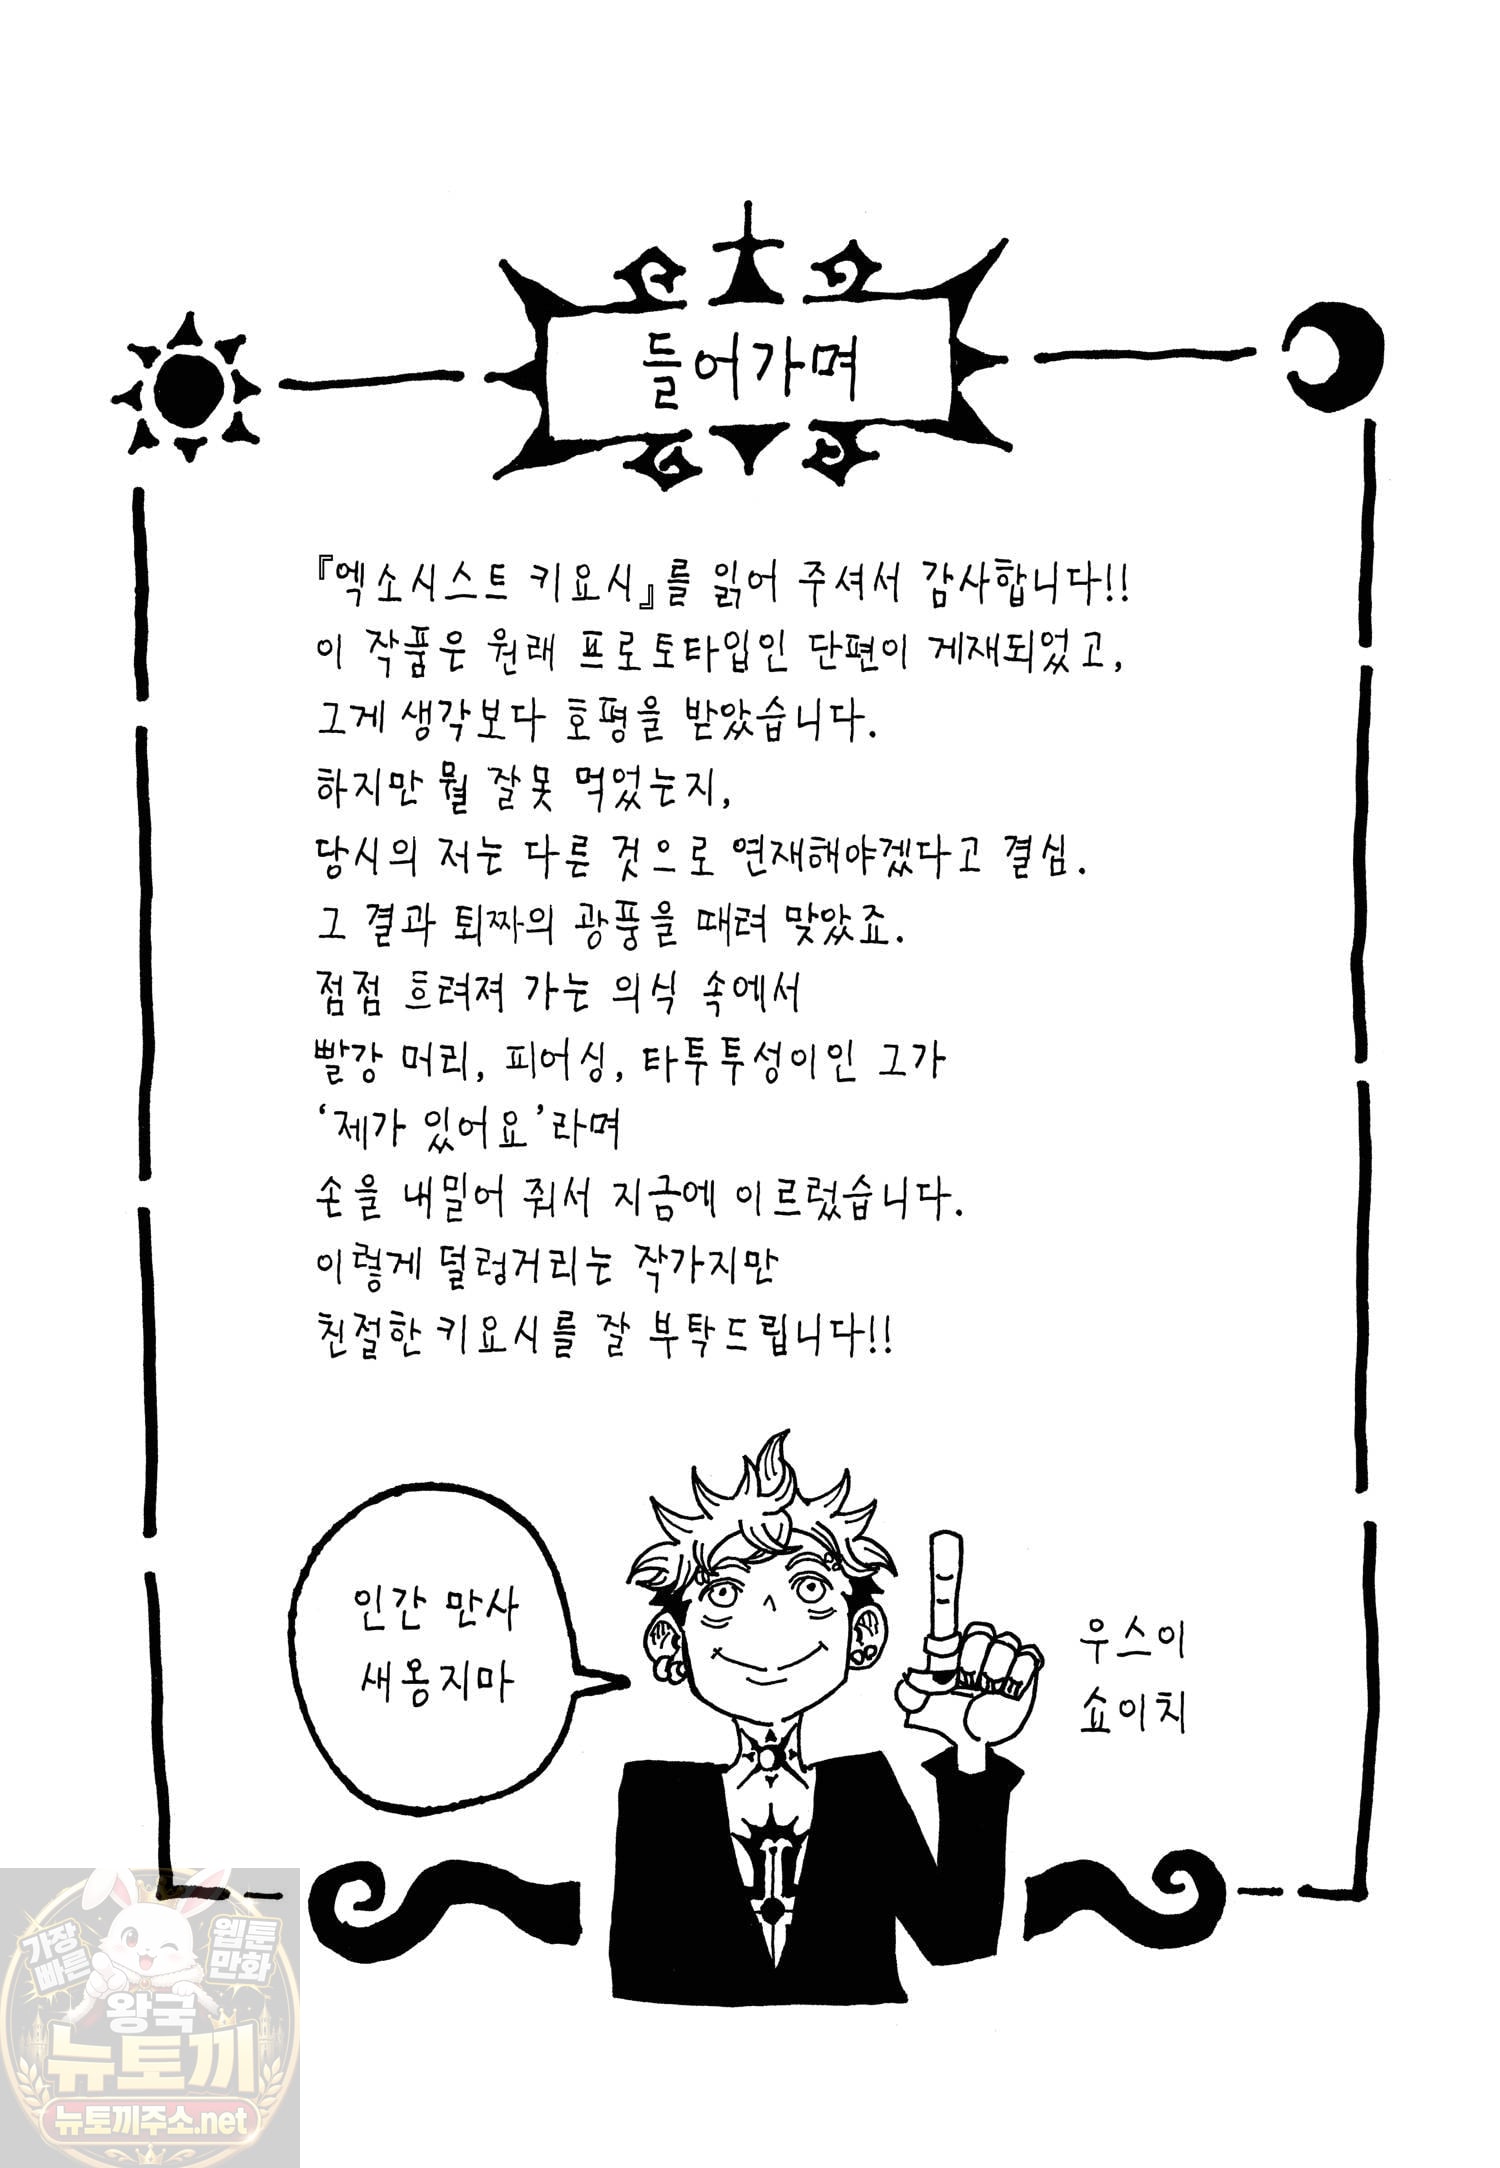 들어가며
『엑소시스트 키요시』를 읽어 주셔서 감사합니다!!
이 작품은 원래 프로토타입인 단편이 게재되었고,
그게 생각보다 호평을 받았습니다.
하지만 뭘 잘못 먹었는지,
당시의 저는 다른 것으로 연재해야겠다고 결심.
그 결과 퇴짜의 광풍을 때려 맞았죠.
점점 흐려져 가는 의식 속에서
빨강 머리, 피어싱, 타투투성이인 그가
‘제가 있어요’라며
손을 내밀어 줘서 지금에 이르렀습니다.
이렇게 덜렁거리는 작가지만
친절한 키요시를 잘 부탁드립니다!!
인간 만사
새옹지마
우스이
쇼이치
가장
빠른
웹툰
만화
왕국
뉴토끼
뉴토끼주소.net